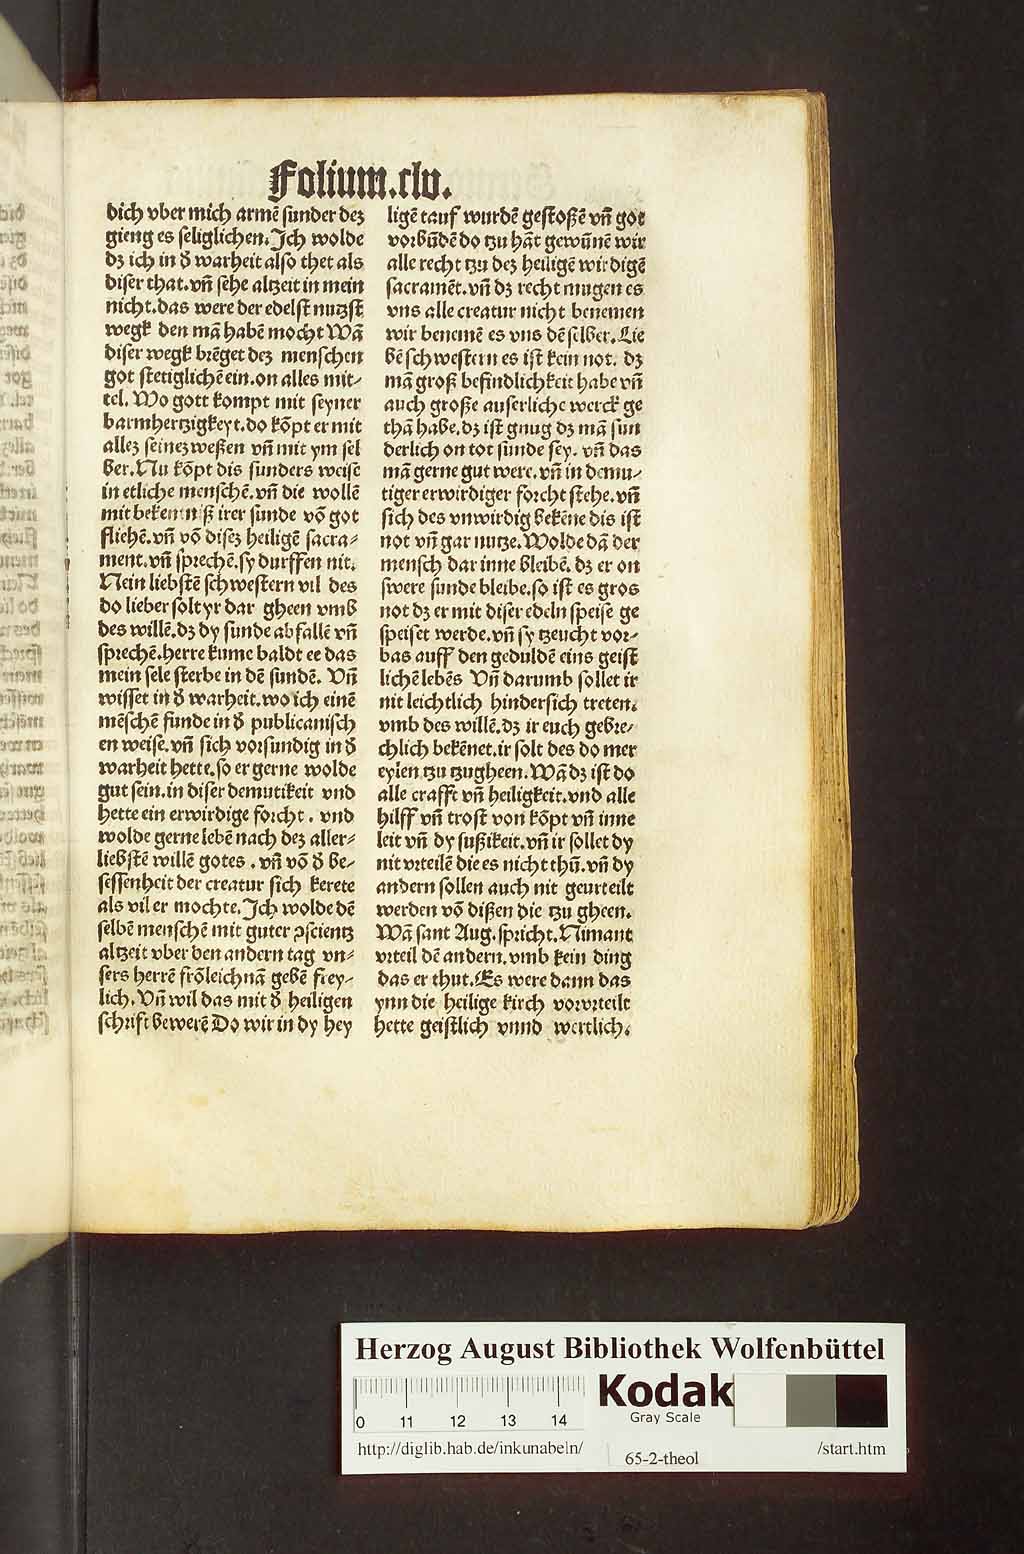 Folium.clv.
dich vber mich armē sunder deʒ
gieng es seliglichen. Jch wolde
dʒ ich in ď warheit also thet als
diser that. vñ sehe altzeit in mein
nicht. das were der edelst nutzst
wegk den mā habē mocht Wā
diser wegk brēget deʒ menschen
got stetiglichē ein. on alles mit-
tel. Wo gott kompt mit seyner
barmhertzigkeyt. do kōpt er mit
alleʒ seineʒ weßen vñ mit ym sel
ber. Nu kōpt dis sunders weise
in etliche menschē. vñ die wollē
mit bekentniß irer sunde vō got
fliehē. vñ vō diseʒ heiligē sacra-
ment. vñ sprechē. sy durffen nit.
Nein liebstē schwestern vil des
do lieber solt yr dar gheen vmb
des willē. dʒ dy sunde abfallē vñ
sprechē. herre kume baldt ee das
mein sele sterbe in dē sundē. Vñ
wisset in ď warheit. wo ich einē
mēschē funde in ď publicanisch
en weise. vñ sich vorsundig in ď
warheit hette. so er gerne wolde
gut sein. in diser demutikeit vnd
hette ein erwirdige forcht. vnd
wolde gerne lebē nach deʒ aller-
liebstē willē gotes. vñ vō ď be-
sessenheit der creatur sich kerete
als vil er mochte. Jch wolde dē
selbē menschē mit guter ꝯscientz
altzeit vber den andern tag vn-
sers herrē frōleichnā gebē frey-
lich. Vñ wil das mit ď heiligen
schrift bewerē Do wir in dy hey
ligē tauf wurdē gestoßē vñ got
vorbūdē do tzu hāt gewūnē wir
alle recht tzu deʒ heiligē wirdigē
sacramēt. vñ dʒ recht mugen es
vns alle creatur nicht benemen
wir benemē es vns dē selber. Lie
bē schwestern es ist kein not. dʒ
mā groß befindlichkeit habe vñ
auch große auserliche werck ge
thā habe. dʒ ist gnug dʒ mā sun
derlich on tot sunde sey. vñ das
mā gerne gut were. vñ in demu-
tiger erwirdiger forcht stehe. vñ
sich des vnwirdig bekēne dis ist
not vñ gar nutze. Wolde dā der
mensch dar inne bleibē. dʒ er on
swere sunde bleibe. so ist es gros
not dʒ er mit diser edeln speise ge
speiset werde. vñ sy tzeucht vor-
bas auff den geduldē eins geist
lichē lebēs Vñ darumb sollet ir
nit leichtlich hindersich treten.
vmb des willē. dʒ ir euch gebre-
chlich bekēnet. ir solt des do mer
eylen tzu tzugheen. Wā dʒ ist do
alle crafft vñ heiligkeit. vnd alle
hilff vñ trost von kōpt vñ inne
leit vñ dy sußikeit. vñ ir sollet dy
nit vrteilē die es nicht thū. vñ dy
andern sollen auch nit geurteilt
werden vō dißen die tzu gheen.
Wā sant Aug. spricht. Nimant
vrteil dē andern. vmb kein ding
das er thut. Es were dann das
ynn die heilige kirch vorvrteilt
hette geistlich vnnd wertlich.
Herzog August Bibliothek Wolfenbüttel
Kodak
Gray Scale
0 11 12 13 14
http://diglib.hab.de/inkunabeln/
65-2-theol
/start.htm